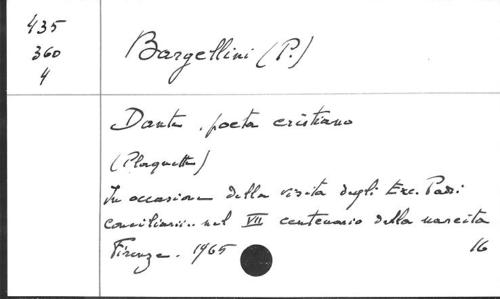 435
360
4
Bargellini (P.)
Dante, poeta cristiano
(Plaquette)
In occasione della visita degli Exc. Padri
conciliarii.. nel VII centenario della nascita
Firenze. 1965
16